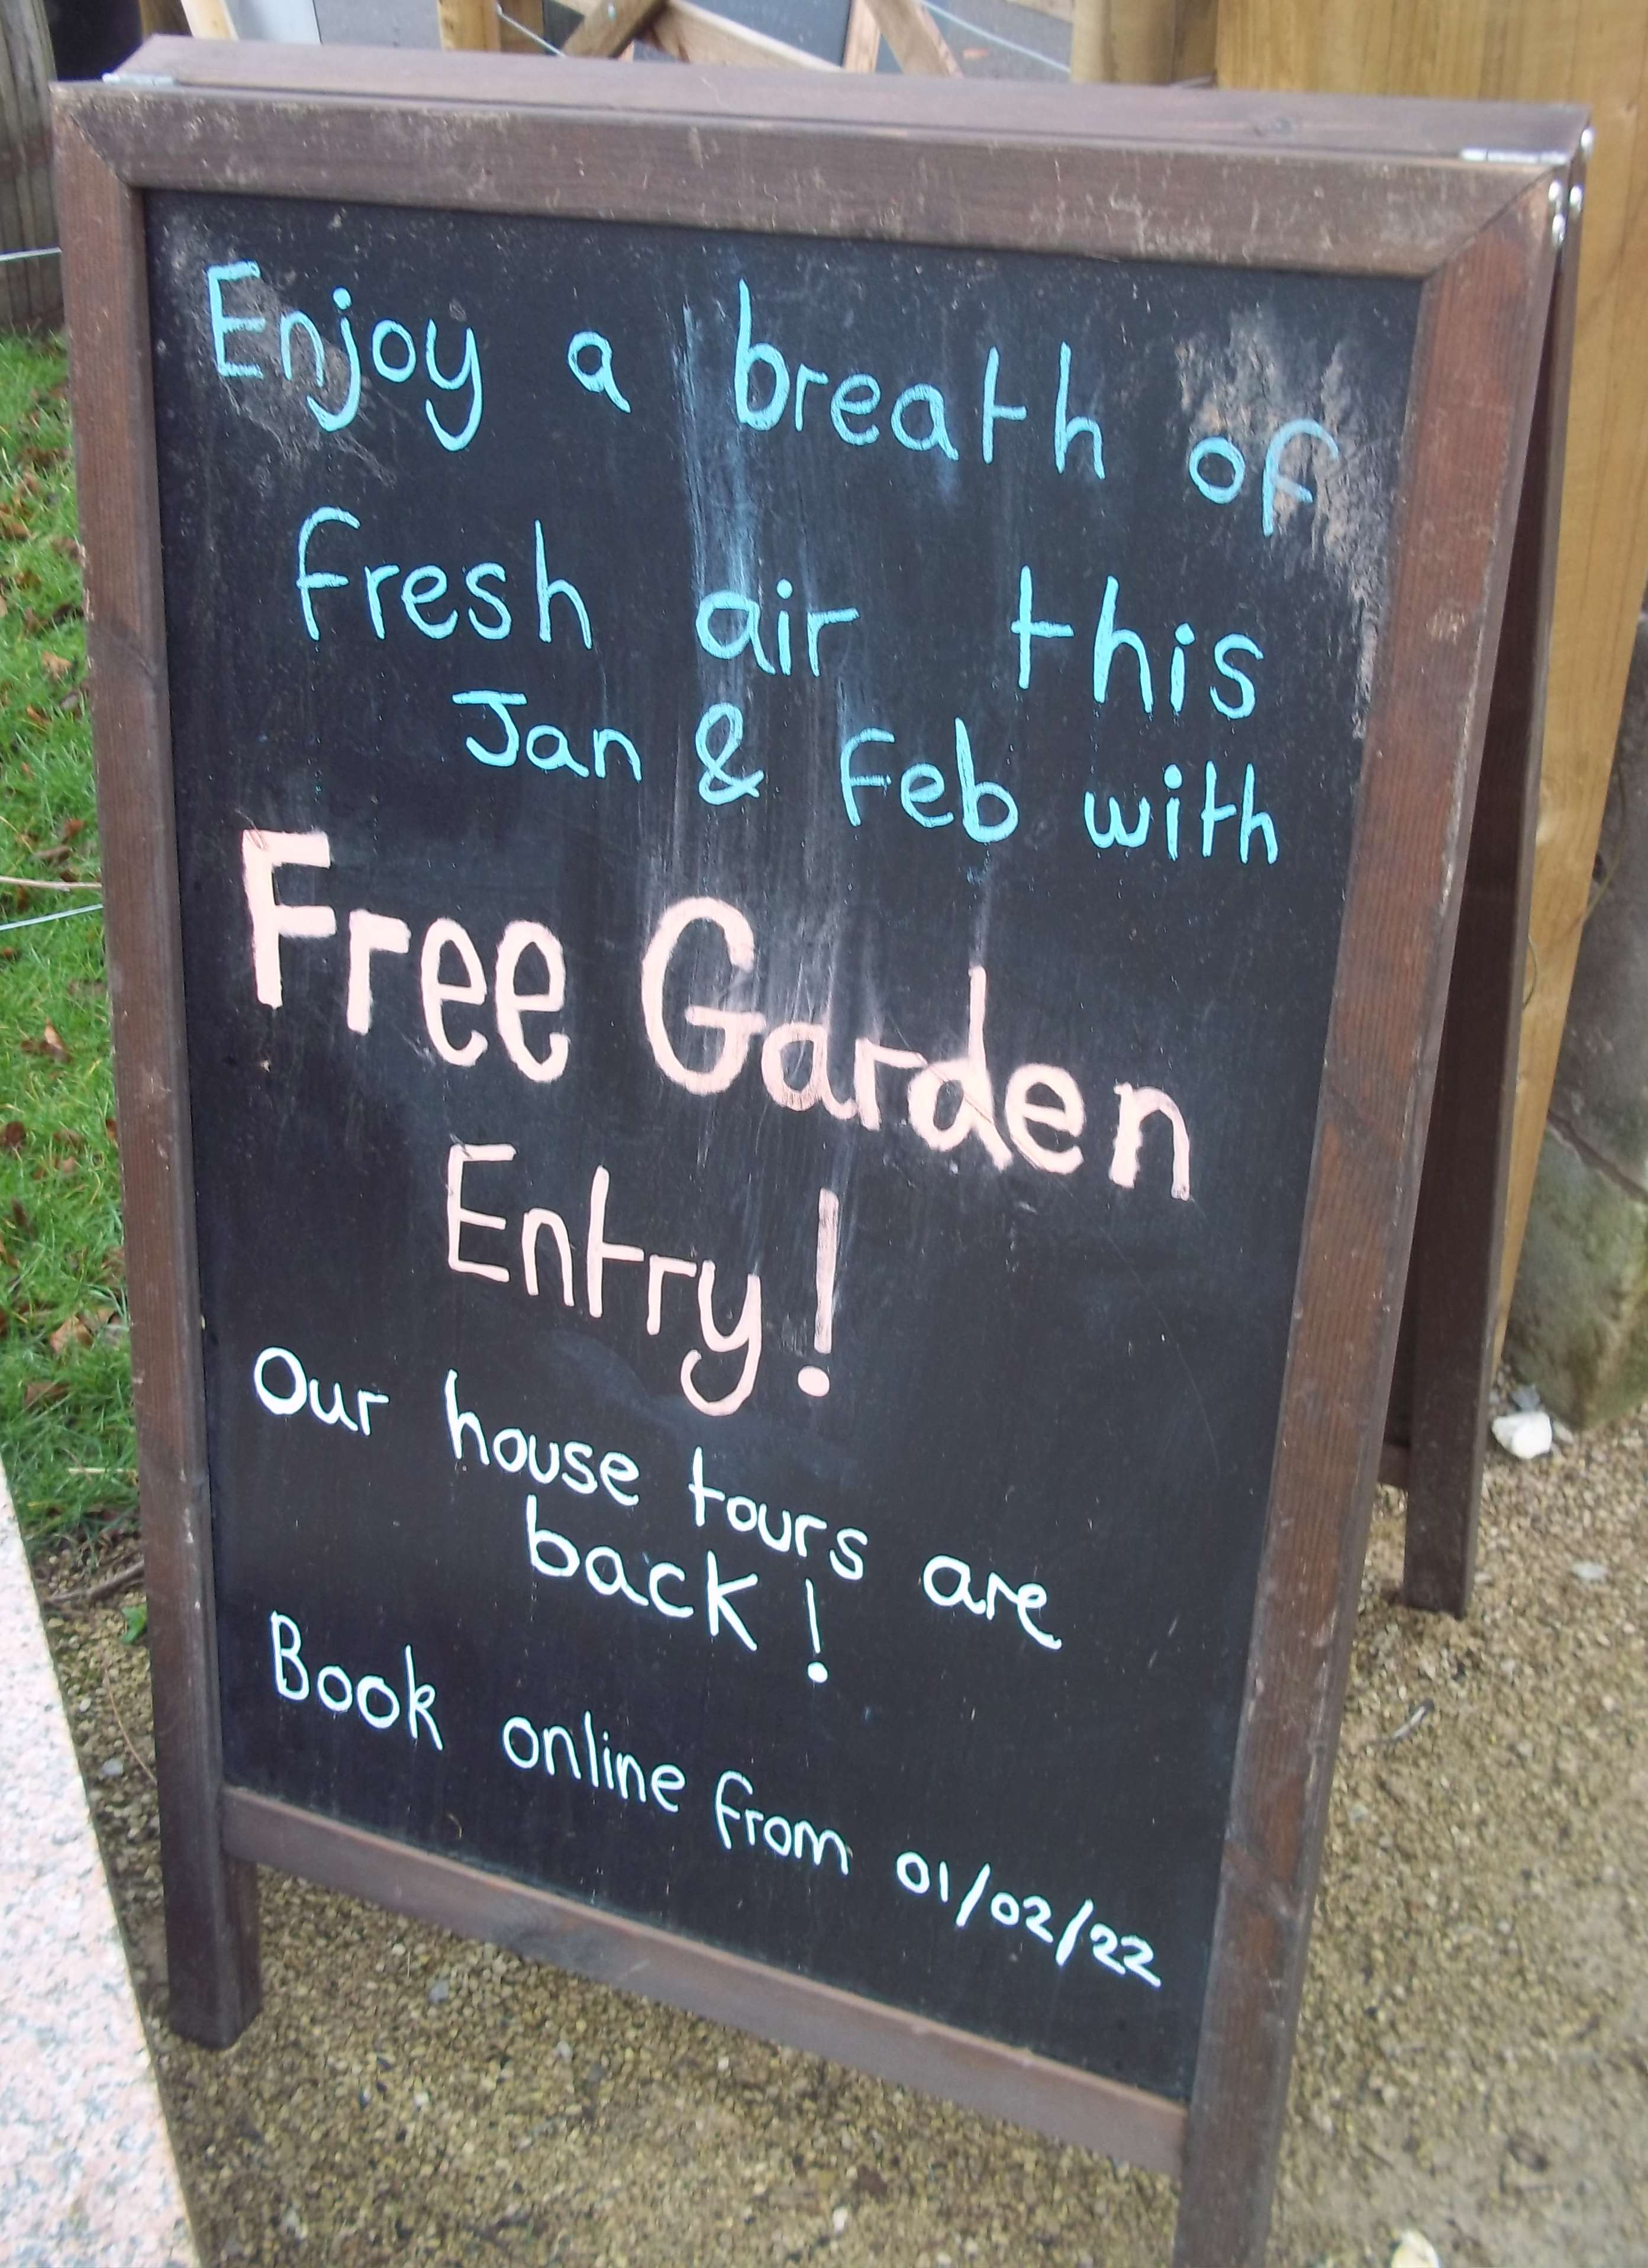 Enjoy a breath of
fresh air this
Jan & Feb with
Free Garden
Entry!
Our house tours are
back!
Book online from 01/02/22